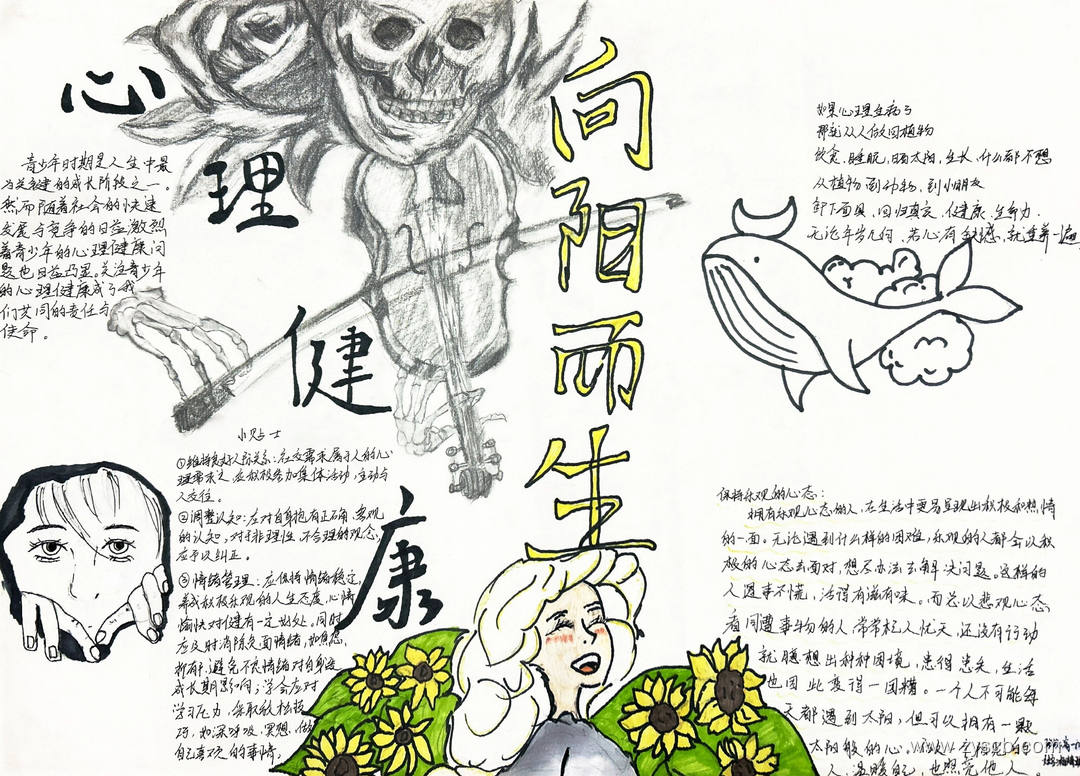 心理健康
向阳而生
青少年时期是人生中最
为关键的成长阶段之一。
然而随着社会的快速
发展与竞争的日益激烈
着青少年的心理健康问
题也日益凸显,关注青少年
的心理健康成了我
们共同的责任与
使命。
小贴士
①维持良好人际关系:在交需求属于人的心
理需求之,应积极参加集体活动,主动与
人交往。
②调整认知:应对自身抱有正确、客观
的认知,对于非理性、不合理的观念,
应予以纠正。
③情绪管理:应保持情绪稳定,
养成积极乐观的人生态度,心情
愉快对健有一定益处,同时
应及时消除负面情绪,如焦虑,
抑郁,避免不良情绪对自身造
成长期影响;学会应对
学习压力,采取放松技
巧,如深呼吸、冥想、做
自己喜欢的事情。
如果心理生病了
那就从人做回植物
饮食、睡眠、晒太阳,生长,什么都不想
从植物到动物,到小朋友
卸下面具,回归真实、健康、生命力.
无论年岁几何,若心有缺憾,就重养一遍
保持乐观的心态:
拥有乐观心态的人,在生活中更易呈现出积极和热情
的一面。无论遇到什么样的困难,乐观的人都会以积
极的心态去面对,想尽办法去解决问题。这样的
人遇事不慌,活得有滋有味。而总以悲观心态
看问遭事物的人,常常杞人忧天,还没有行动
就臆想出种种困境,患得患失,生活
也因此变得一团糟。一个人不可能每
天都遇到太阳,但可以拥有一颗
太阳般的心。
人,温暖自己,也照亮他人